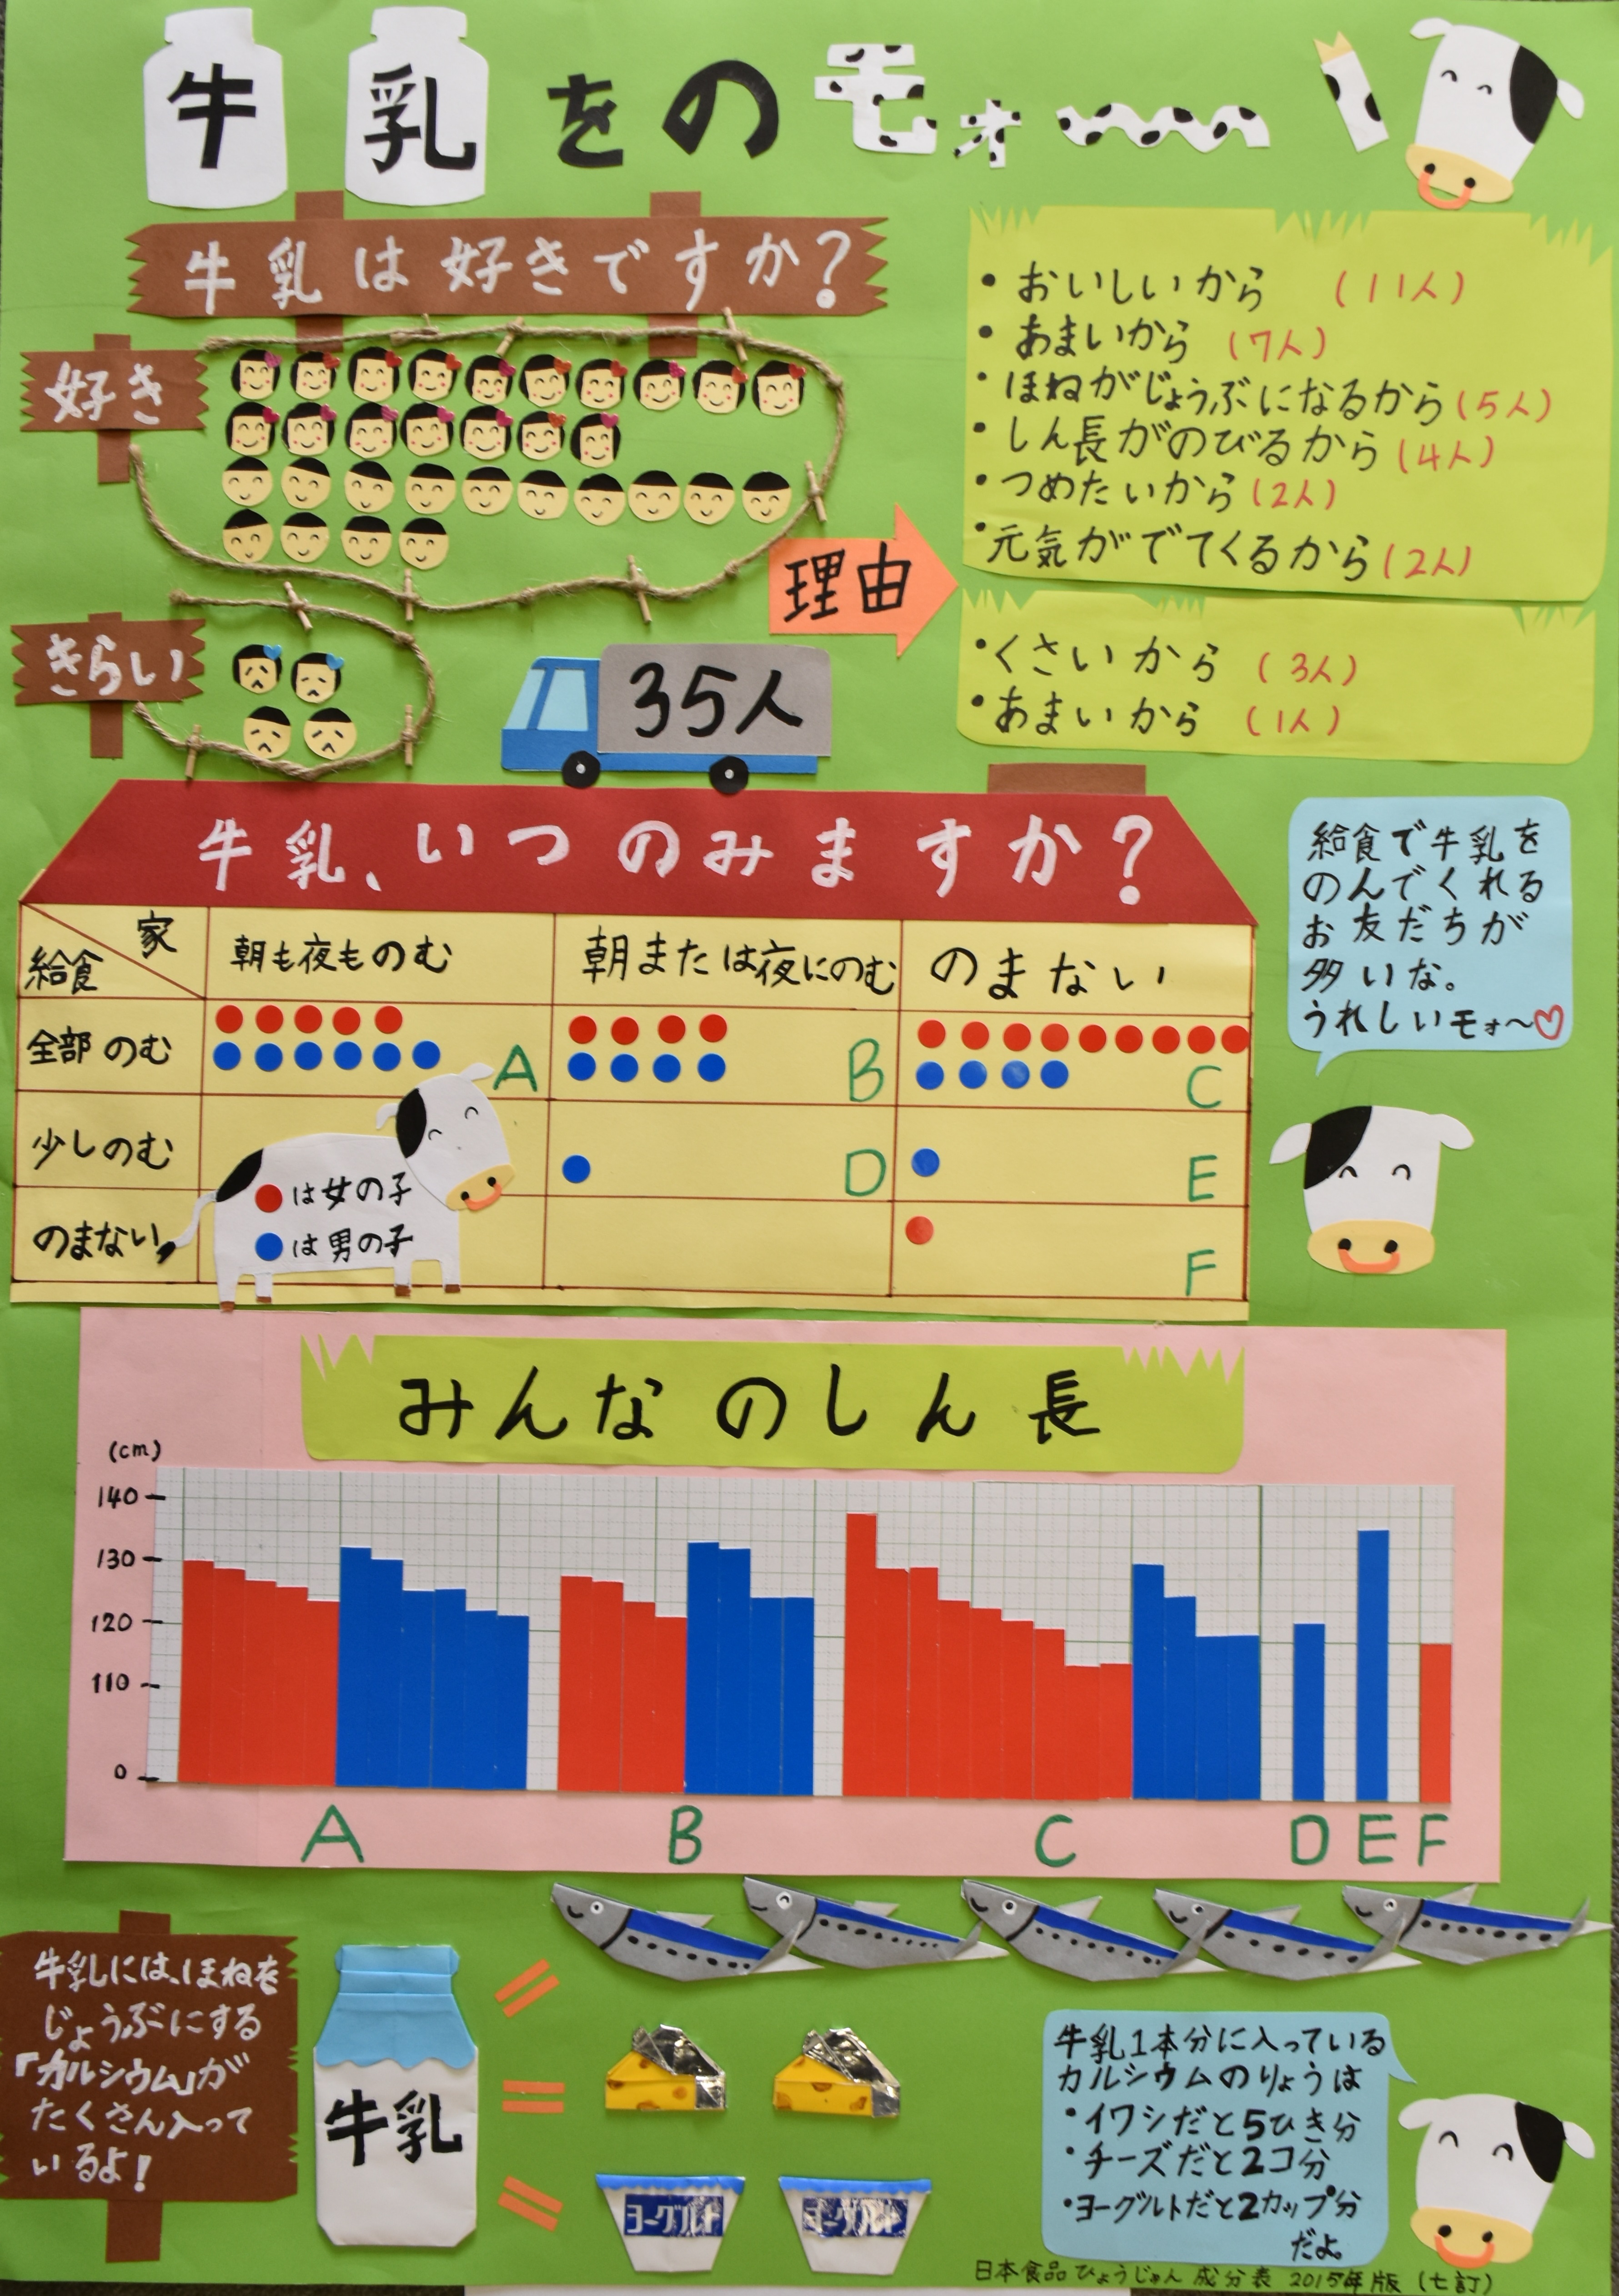 牛乳をのモォ〜〜!
牛乳は好きですか?
好き
きらい
35人
理由
・おいしいから (11人)
・あまいから (7人)
・ほねがじょうぶになるから(5人)
・しん長がのびるから(4人)
・つめたいから(2人)
・元気がでてくるから(2人)
・くさいから (3人)
・あまいから (1人)
牛乳、いつのみますか?
家
給食
朝も夜ものむ
朝または夜にのむ
のまない
全部のむ
A
B
C
少しのむ
D
E
のまない
F
●は女の子
●は男の子
給食で牛乳を
のんでくれる
お友だちが
多いな。
うれしいモォ~♡
みんなのしん長
(cm)
140
130
120
110
0
A
B
C
D
E
F
牛乳には、ほねを
じょうぶにする
「カルシウム」が
たくさん入って
いるよ!
牛乳
=
=
=
ヨーグルト
ヨーグルト
牛乳1本分に入っている
カルシウムのりょうは
・イワシだと5ひき分
・チーズだと2コ分
・ヨーグルトだと2カップ分
だよ。
日本食品ひょうじゅん成分表 2015年版(七訂)